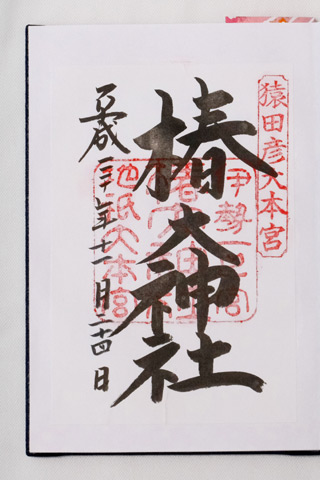 猿田彦大本宮
椿大神社
伊勢一之宮
地祇大本宮
平成二十七年十一月二十四日